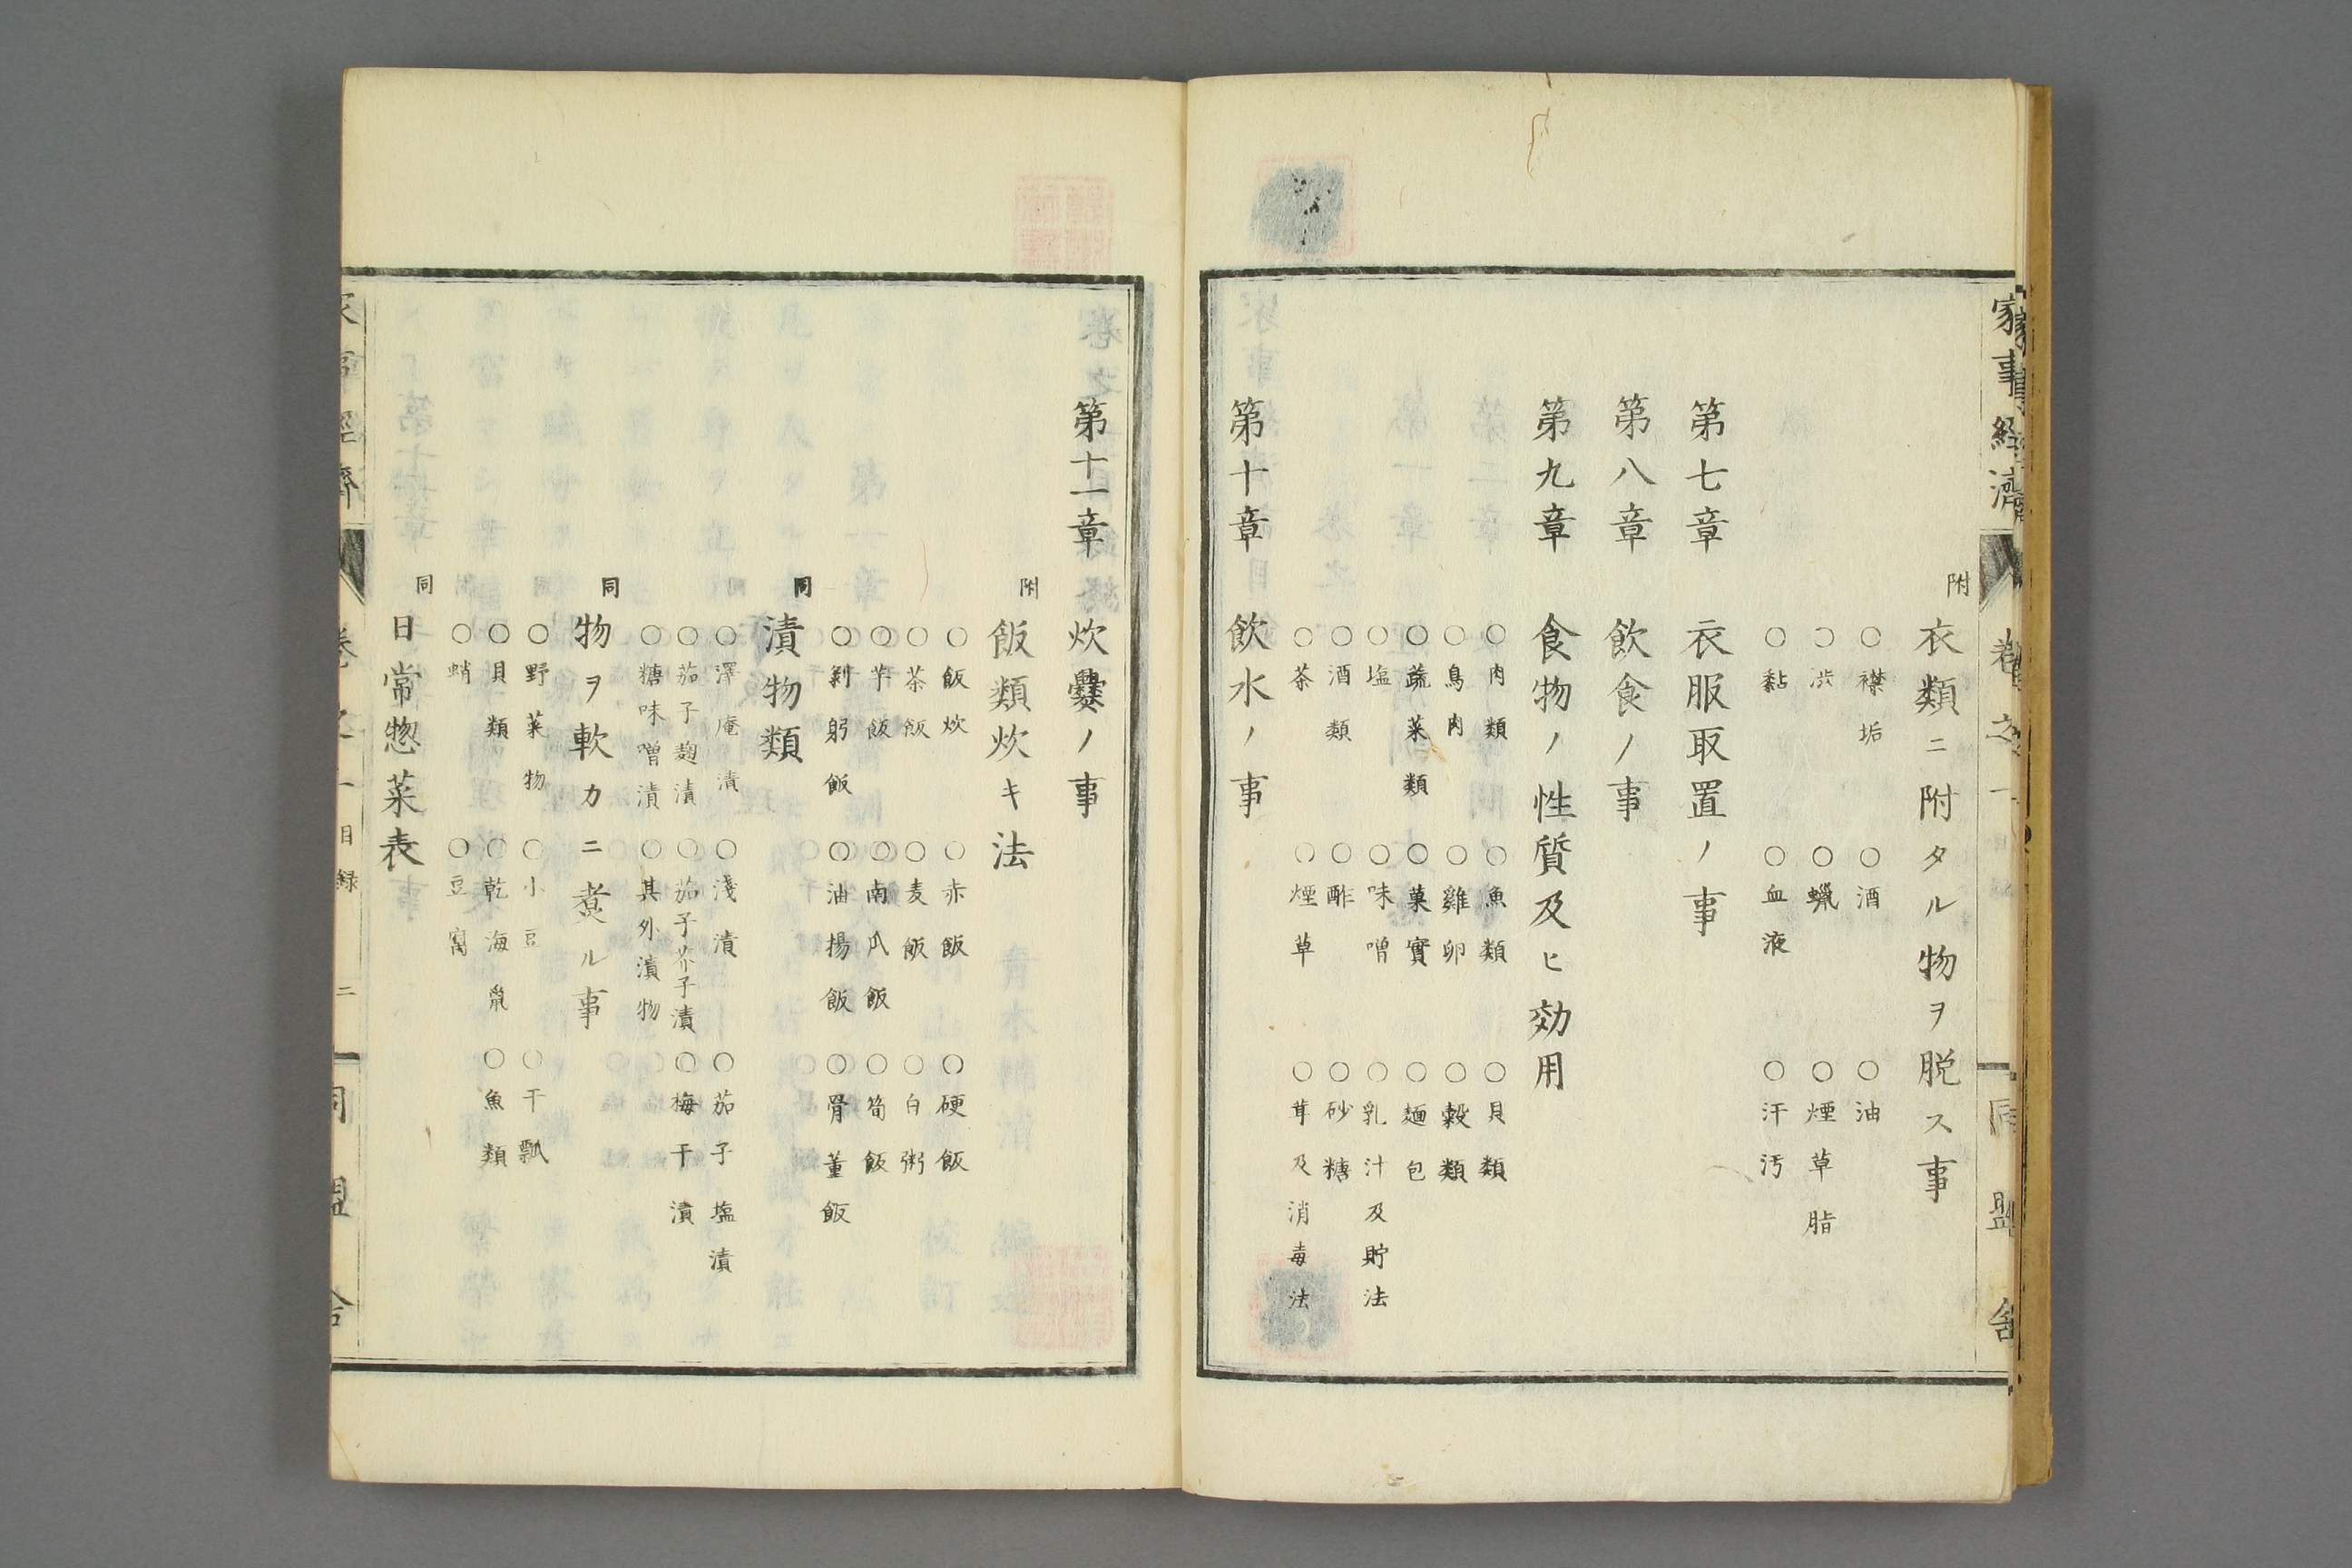 家事経済 卷之一 同盟舎
附 衣類ニ附タル物ヲ脱ス事
○襟垢 ○酒 ○油
○渋 ○蠟 ○煙草脂
○黏 ○血液 ○汗汚
第七章 衣服取置ノ事
第八章 飲食ノ事
第九章 食物ノ性質及ヒ効用
○肉類 ○魚類 ○貝類
○鳥肉 ○雞卵 ○穀類
○蔬菜類 ○菓實 ○麺包
○塩 ○味噌 ○乳汁及貯法
○酒類 ○酢 ○砂糖
○茶 ○煙草 ○茸及消毒法
第十章 飲水ノ事
第十一章 炊爨ノ事
附 飯類炊キ法
○飯炊 ○赤飯 ○硬飯
○茶飯 ○麦飯 ○白粥
○芋飯 ○南瓜飯 ○筍飯
○剝躬飯 ○油揚飯 ○骨董飯
同 漬物類
○澤庵漬 ○淺漬 ○茄子塩漬
○茄子麹漬 ○茄子芥子漬 ○梅干漬
○糖味噌漬 ○其外漬物
同 物ヲ軟カニ煑ル事
○野菜物 ○小豆 ○干瓢
○貝類 ○乾海鼠 ○魚類
○蛸 ○豆腐
同 日常惣菜表
家事經濟 卷之一 目録 二 同盟舎